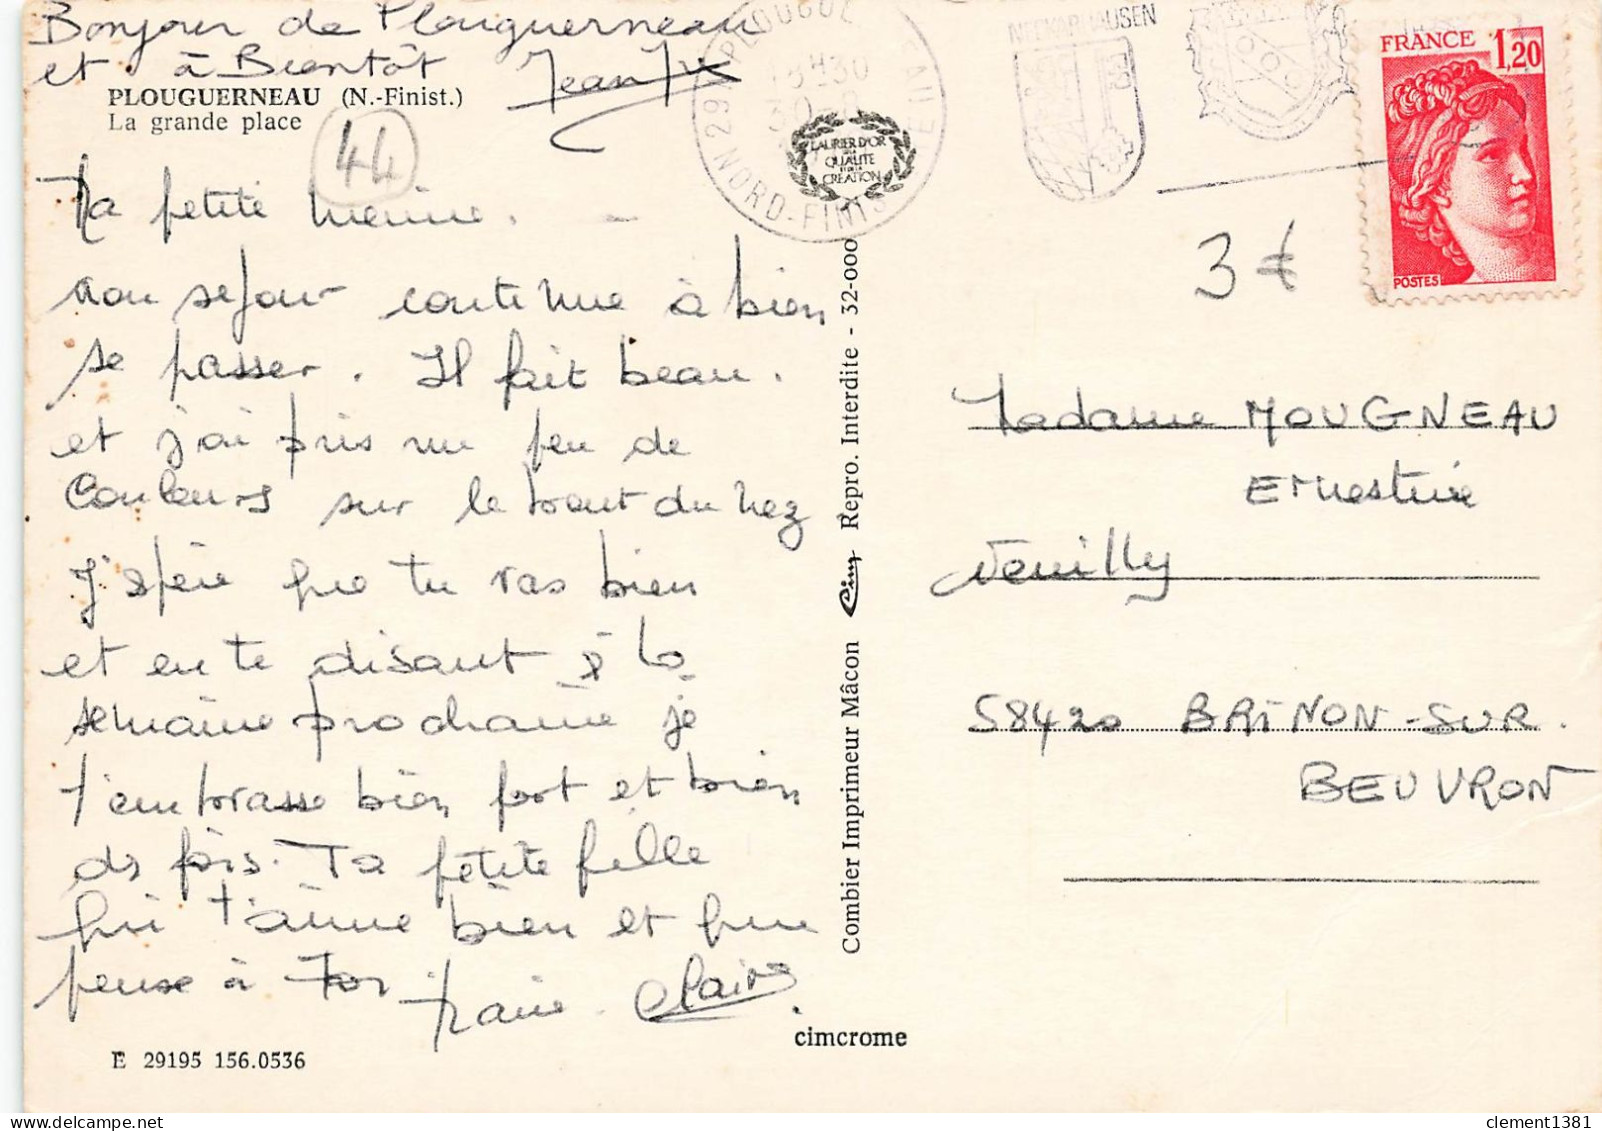 Bonjour de Plouguerneau
et à Bientôt Jean
PLOUGUERNEAU (N.-Finist.)
La grande place
44
Ma petite mémie.
mon sejour continue à bien
se passer. Il fait beau.
et j'ai pris un peu de
couleurs sur le bout du nez
J'espère que tu vas bien
et en te disant à la
semaine prochaine je
t'embrasse bien fort et bien
ds fois. Ta petite fille
qui t'aime bien et qui
pense à toi Marie Claire
E 29195 156.0536
cimcrome
Combier Imprimeur Mâcon Cim Repro. Interdite - 32-000
29 NORD-FINIS
LAURIER D'OR
QUALITE
CREATION
NECKARHAUSEN
FRANCE 1,20
POSTES
3€
Madame MOUGNEAU
Ernestine
Neuilly
58420 BRINON-SUR.
BEUVRON
clement1381